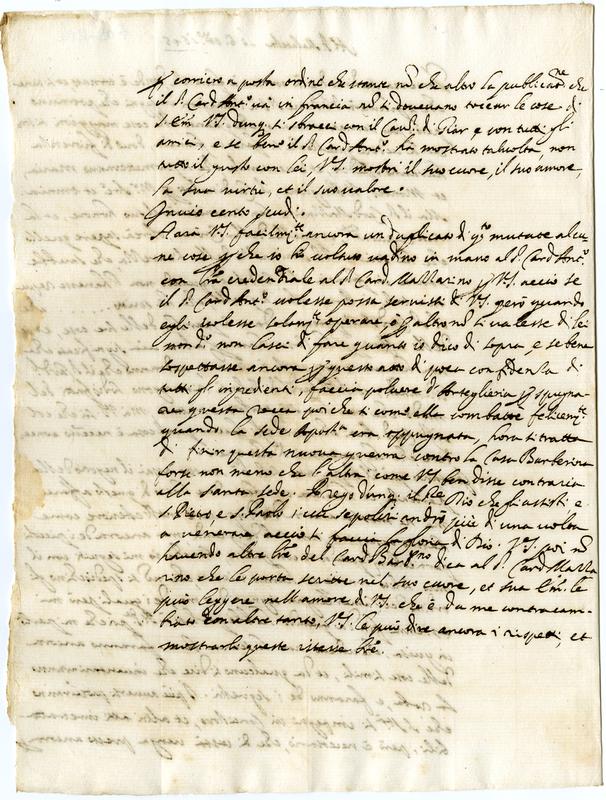 corriero a posta ordine che stante n. che altro la publicat.ne che
il S.r Card Ant.o uà in francia n. si doueuano toccar le cose di
S. Em. V.S. dunq. si sbracci con il Cau.r di Giar e con tutti gli
amici, e se bene il S.r Card Ant.o hà mostrato taluolta, non
tutto il gusto con lei, V.S. mostri il suo cuore, il suo amore,
la sua virtù, et il suo ualore.
Inuio cento scudi.
Aarà V.S. facilm.te ancora un duplicato di q.to mutate alcu-
ne cose che io hò uoluto uadino in mano al S. Card Ant.o
con l'ra credentiale al S. Card. Mazzarino V.S. acciò se
il S. Card Ant.o uolesse possa seruirsi di V.S. però quando
egli uolesse solam.te operare, altro n. si ualesse di lei
non lasci di fare quanto io dico di sopra, e se bene
sospettasse ancora questo atto di poca confidenza di
tutti gl'inpedienti, faccia poluere d'Arteglieria spugna-
re questa rocca poi che si come ella combatte felicem.te
quando la sede Apost.a era oppugnata, hora si tratta
di finir questa nuoua guerra contro la Casa Barberina
forse non meno che l'altra come V.S. ben disse contraria
alla santa sede. Prego dunq. il Sig.re Dio che gli assisti e
S. Pietro e S. Paolo i cui sepolcri andrò più di una uolta
a uenerare acciò si faccia la gloria di Dio. V.S. poi n.
hauendo altre l're del Card Barb.no dica al S. Card Mazza
rino che le porta scritte nel suo cuore, et sua Em. le
può leggere nell'amore di V.S. che è da me contracam-
biato con altre tanto, V.S. le può dire ancora i rispetti, et
mostrarle queste istesse l're.